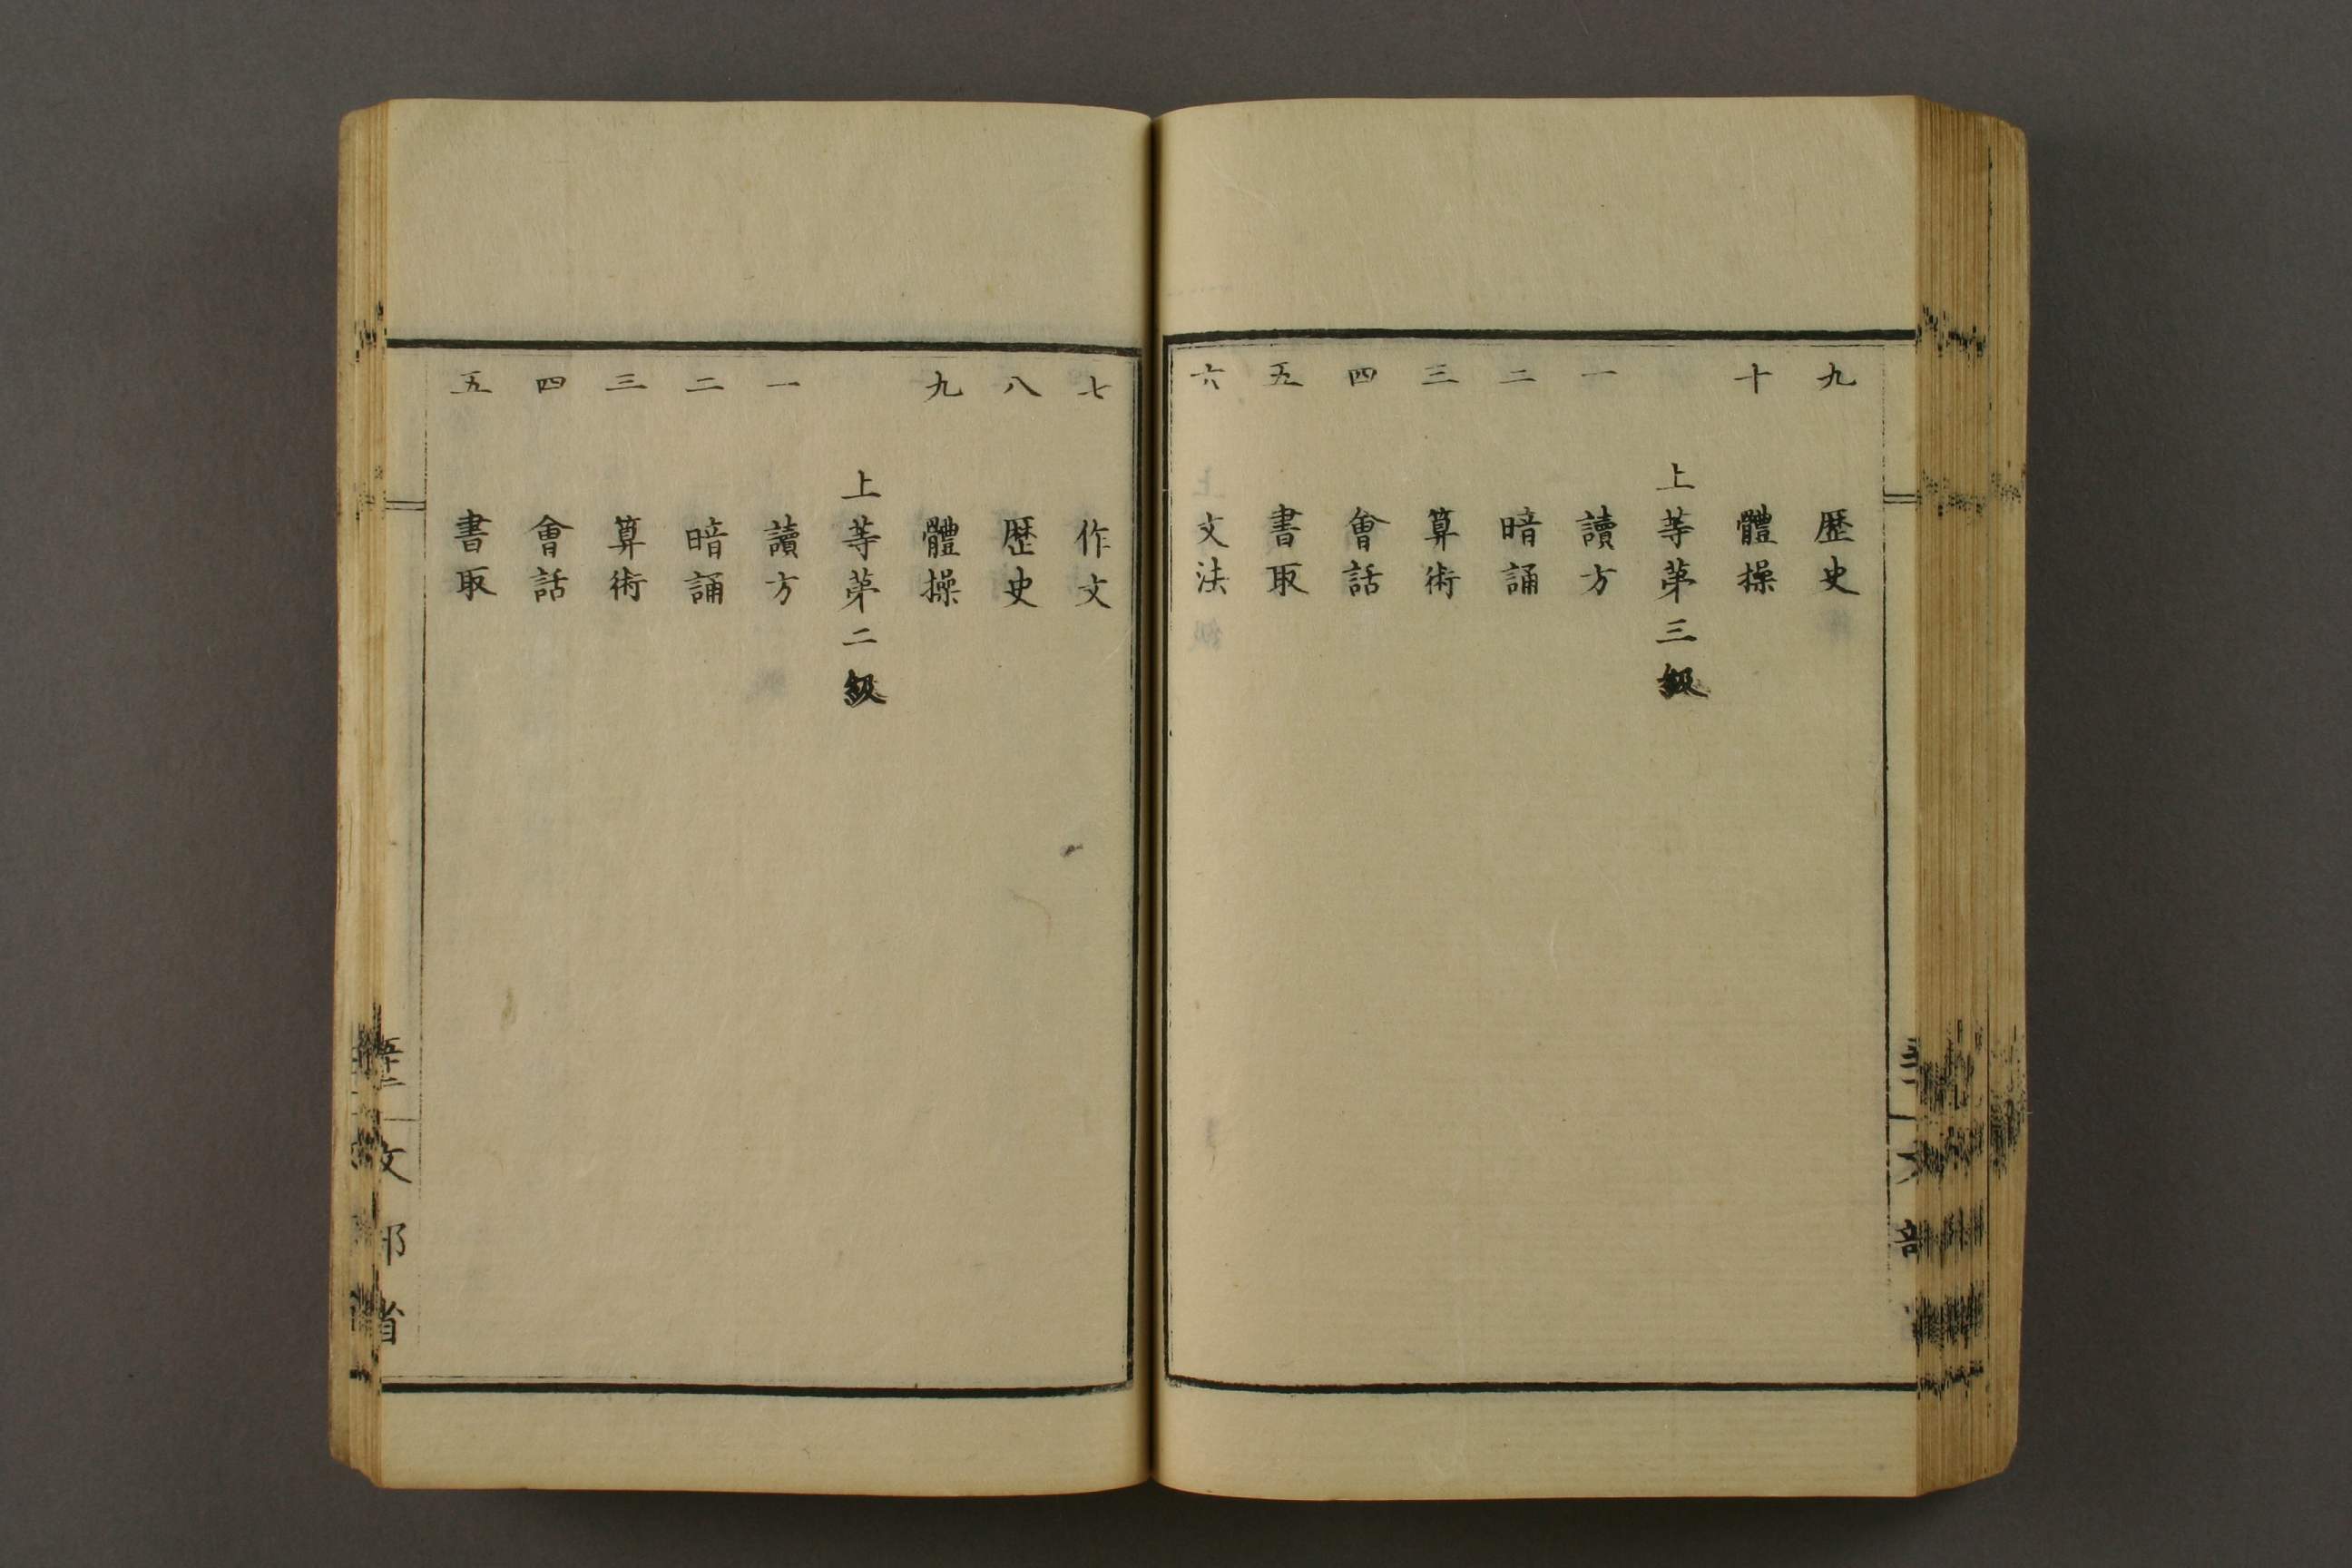 九 歷史
十 體操
上等苐三級
一 讀方
二 暗誦
三 算術
四 會話
五 書取
六 文法
七 作文
八 歷史
九 體操
上等苐二級
一 讀方
二 暗誦
三 算術
四 會話
五 書取
文部省